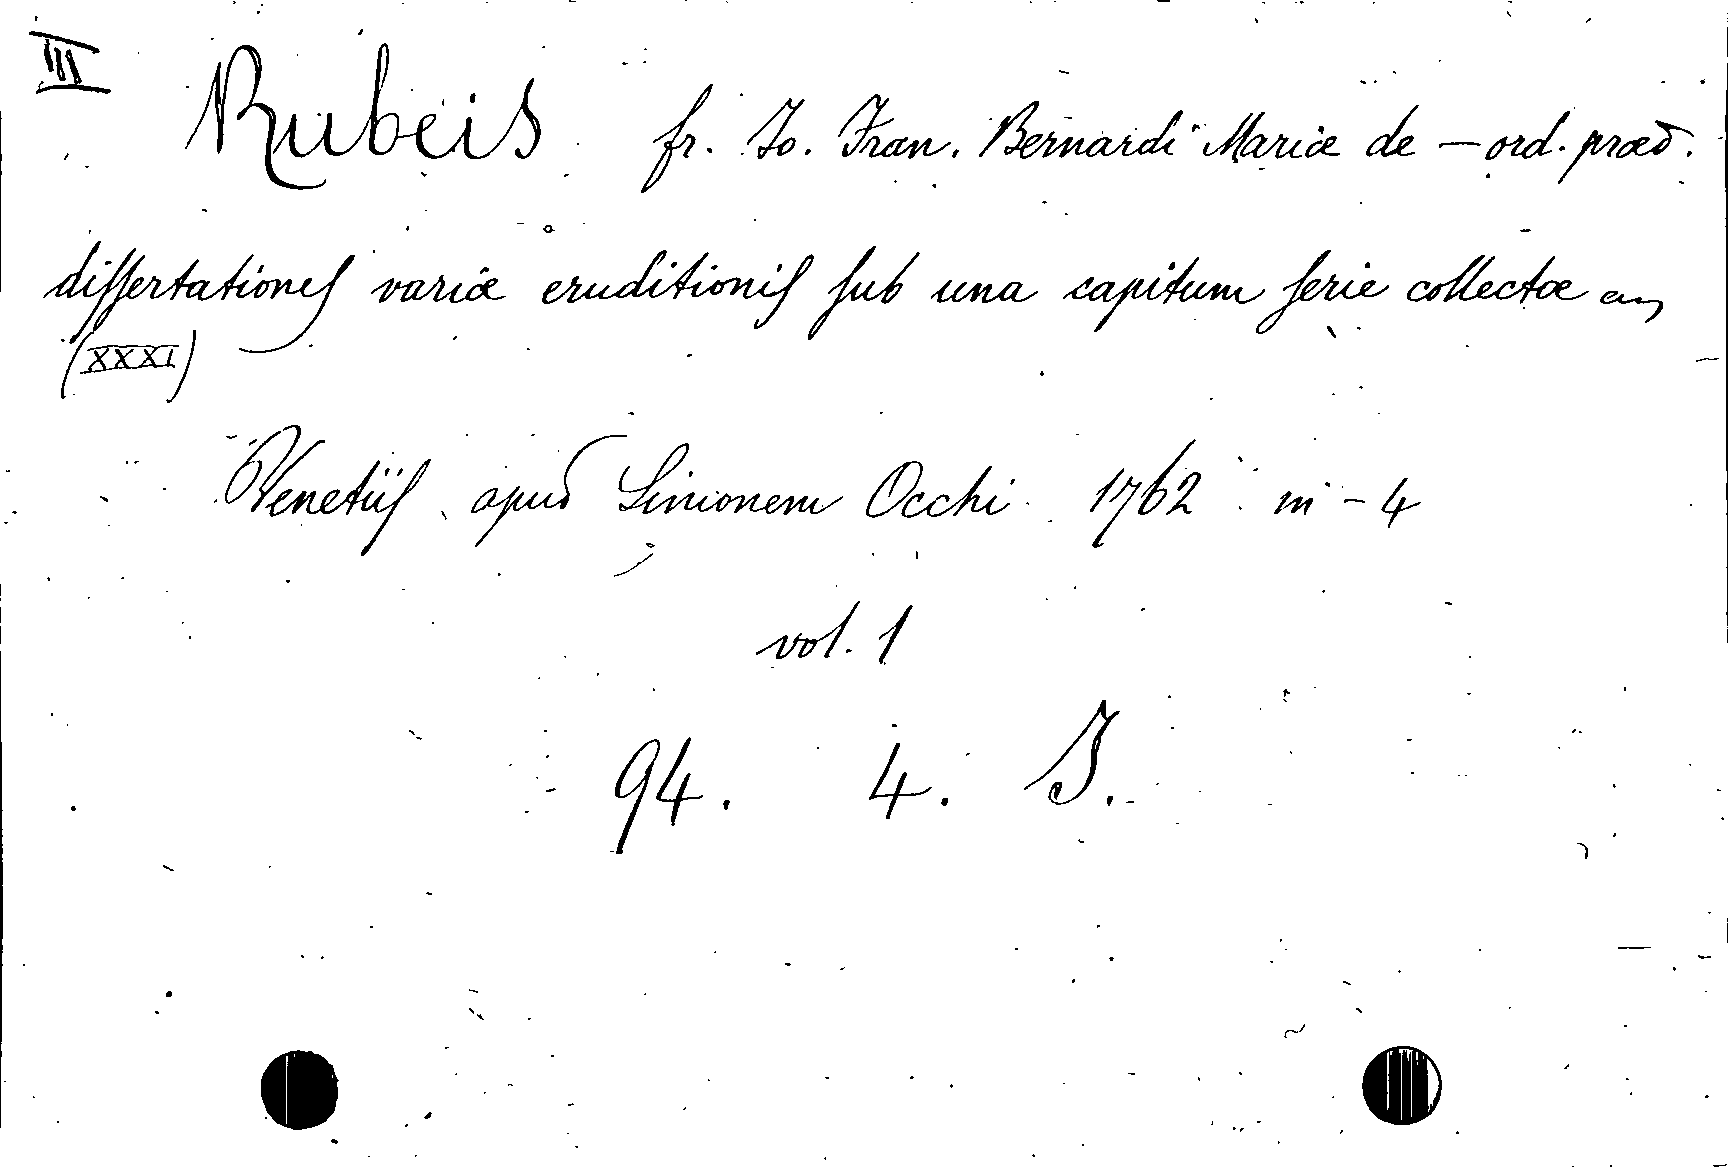 III Rubeis fr. Jo. Fran. Bernardi Mariæ de — ord. præd.
diſſertationeſ variæ eruditioniſ ſub una capitum ſerie collectæ
(XXXI)
Venetiiſ apud Simonem Occhi 1762 in - 4
vol. 1
94. 4. J.